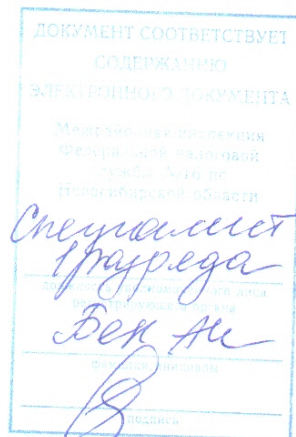 ДОКУМЕНТ СООТВЕТСТВУЕТ
СОДЕРЖАНИЮ
ЭЛЕКТРОННОГО ДОКУМЕНТА
Межрайонная инспекция
Федеральной налоговой
службы по
Новосибирской области
Специалист
1 разряда
должность уполномоченного лица
регистрирующего органа
Бек АИ
фамилия, инициалы
подпись